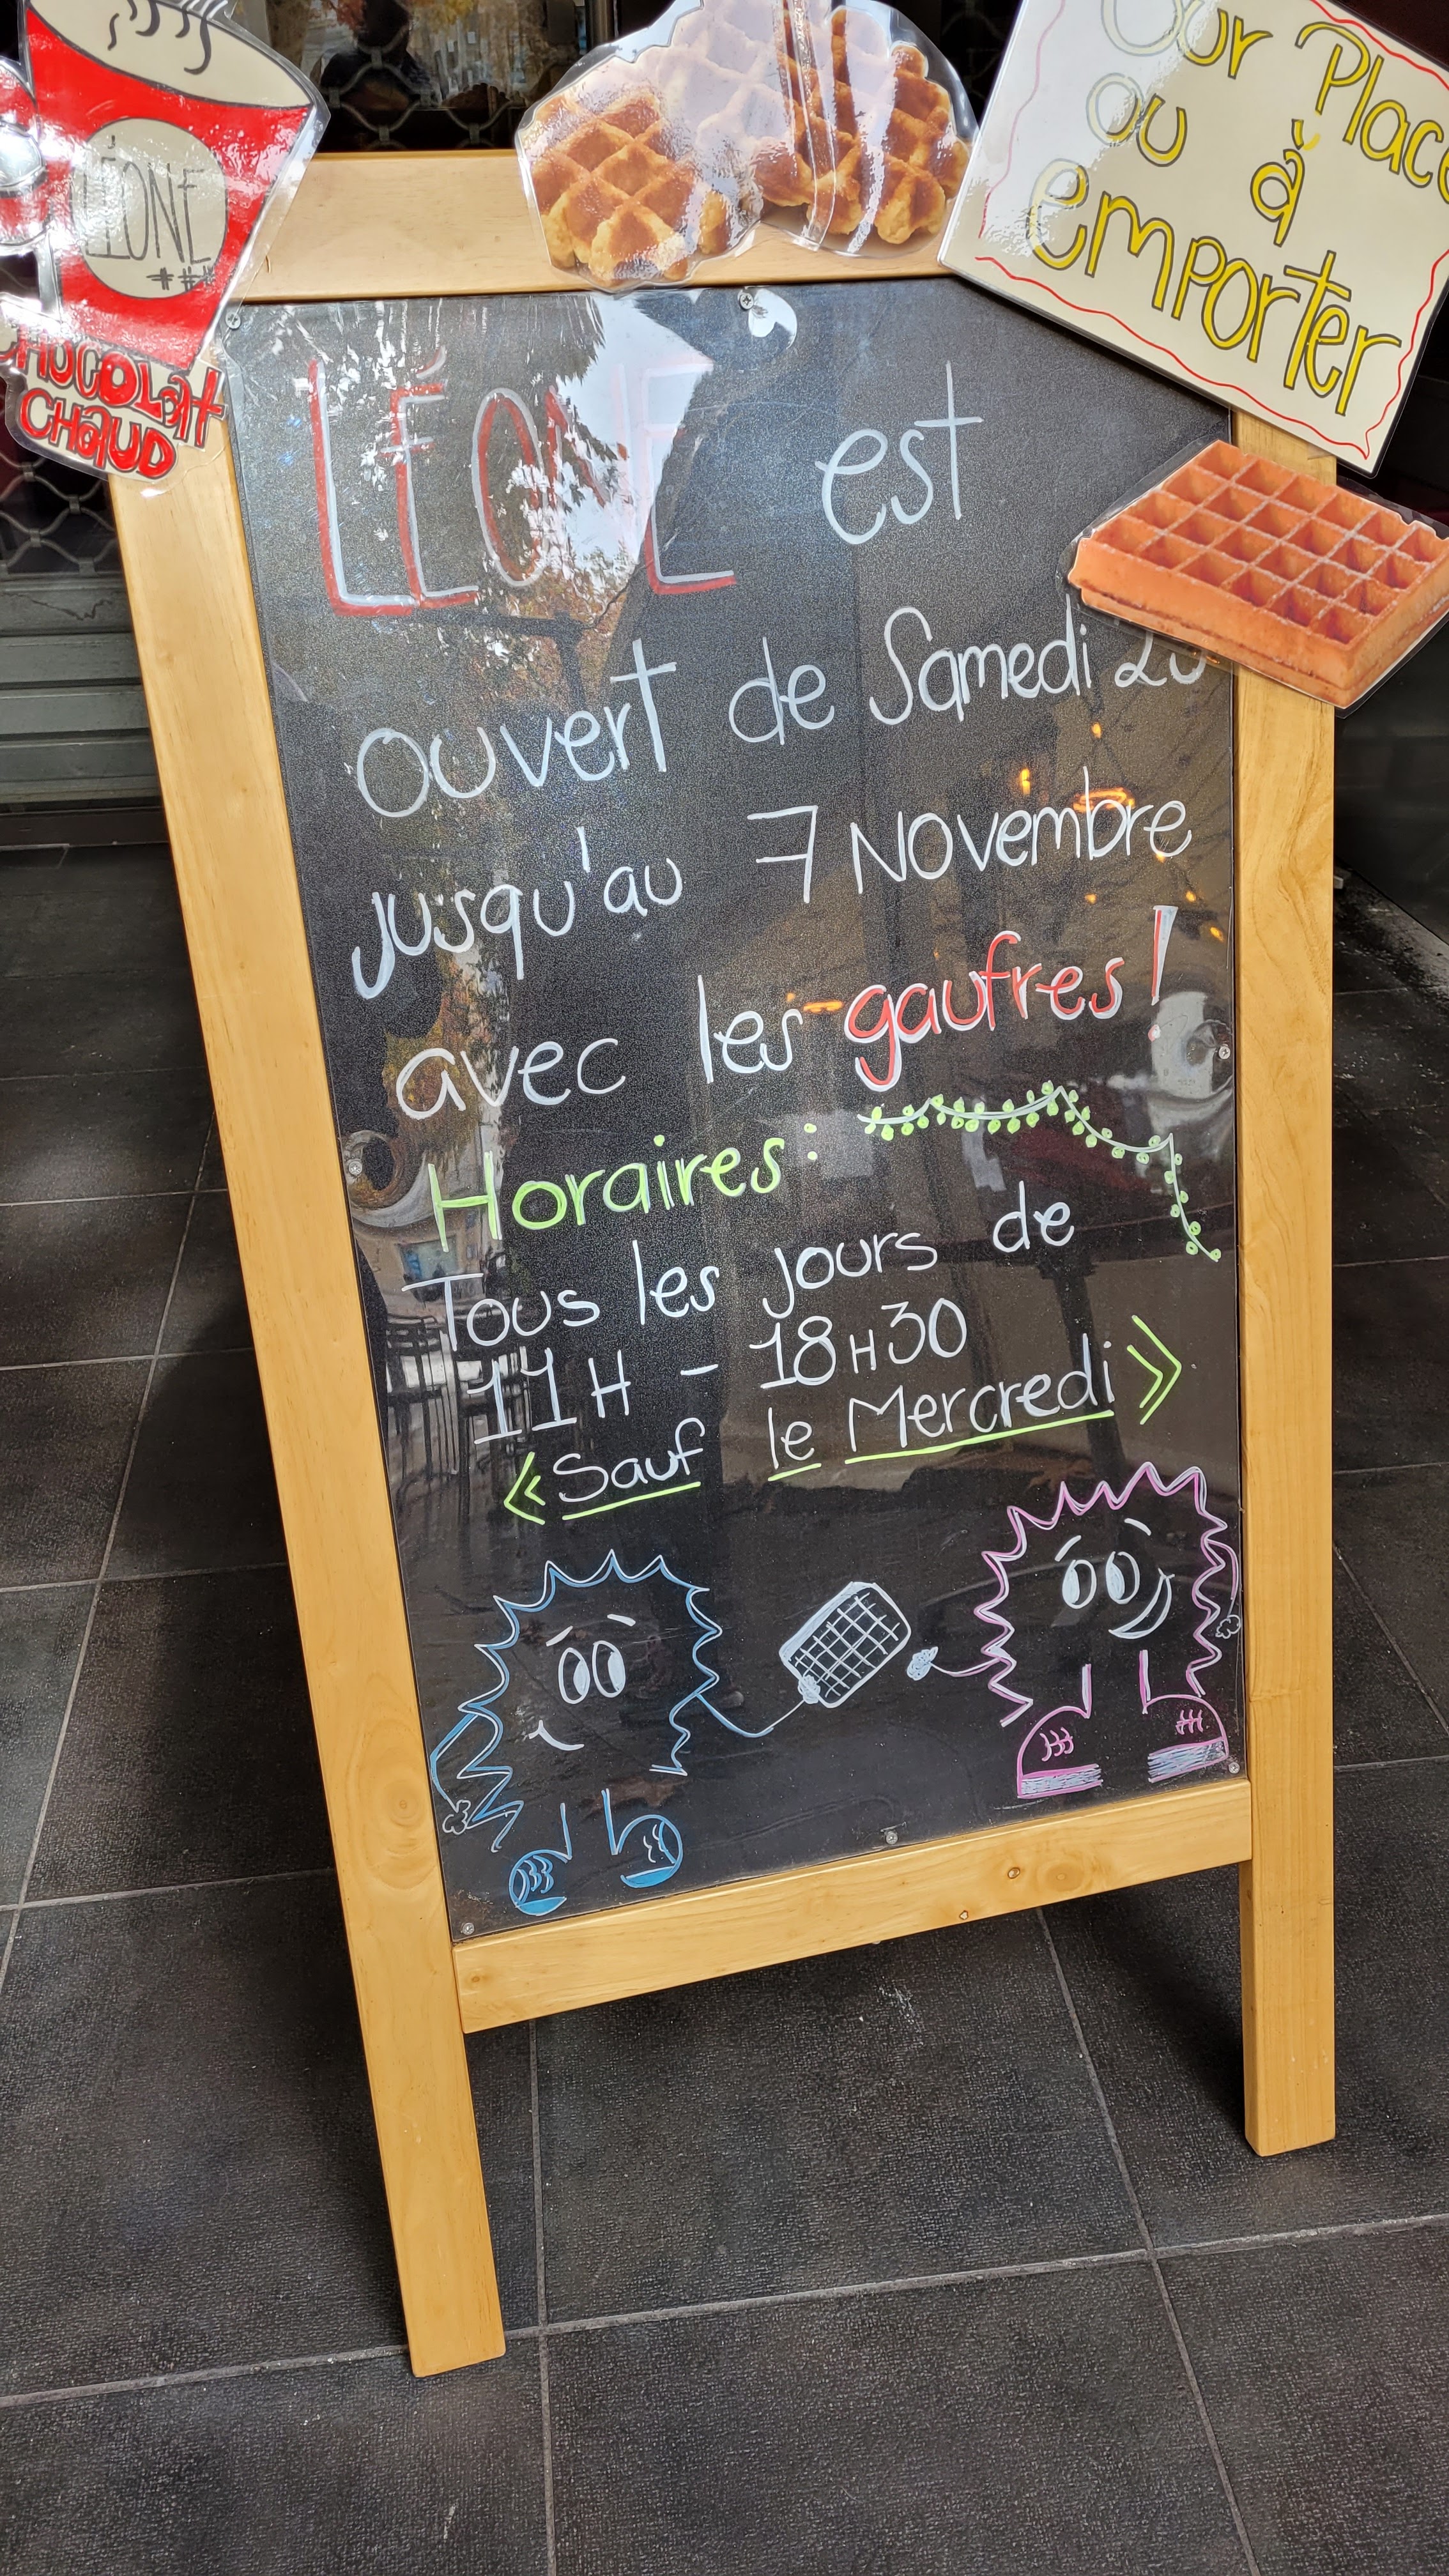 LÉONE
###
CHOCOLAT
CHAUD
Sur Place
ou à
emporter
LÉONE est
ouvert de Samedi
jusqu'au 7 Novembre
avec les gaufres !
Horaires :
Tous les jours de
11H - 18H30
« Sauf le Mercredi »